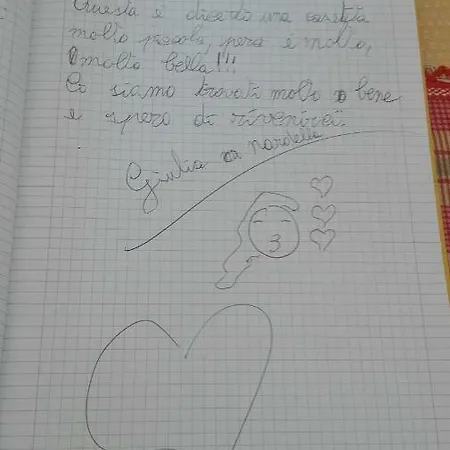 Questa è diventa una casetta
molto piccola, però è molto,
molto bella!!!
Ci siamo trovati molto bene
e spero di rivenirci.
Giulia Nardella